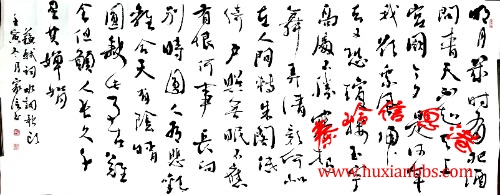 明月幾时有把酒
问青天不知天上
宫阙今夕是何年
我欲乘风归
去又恐琼楼玉宇
高處不胜寒起
舞弄清影何似
在人间转朱阁低
绮户照无眠不應
有恨何事长向
别时圆人有悲歡
離合月有陰晴
圆缺此事古難
全但願人长久千
里共婵娟
苏轼词水调歌头
壬寅冬月
www.huxianbbs.com